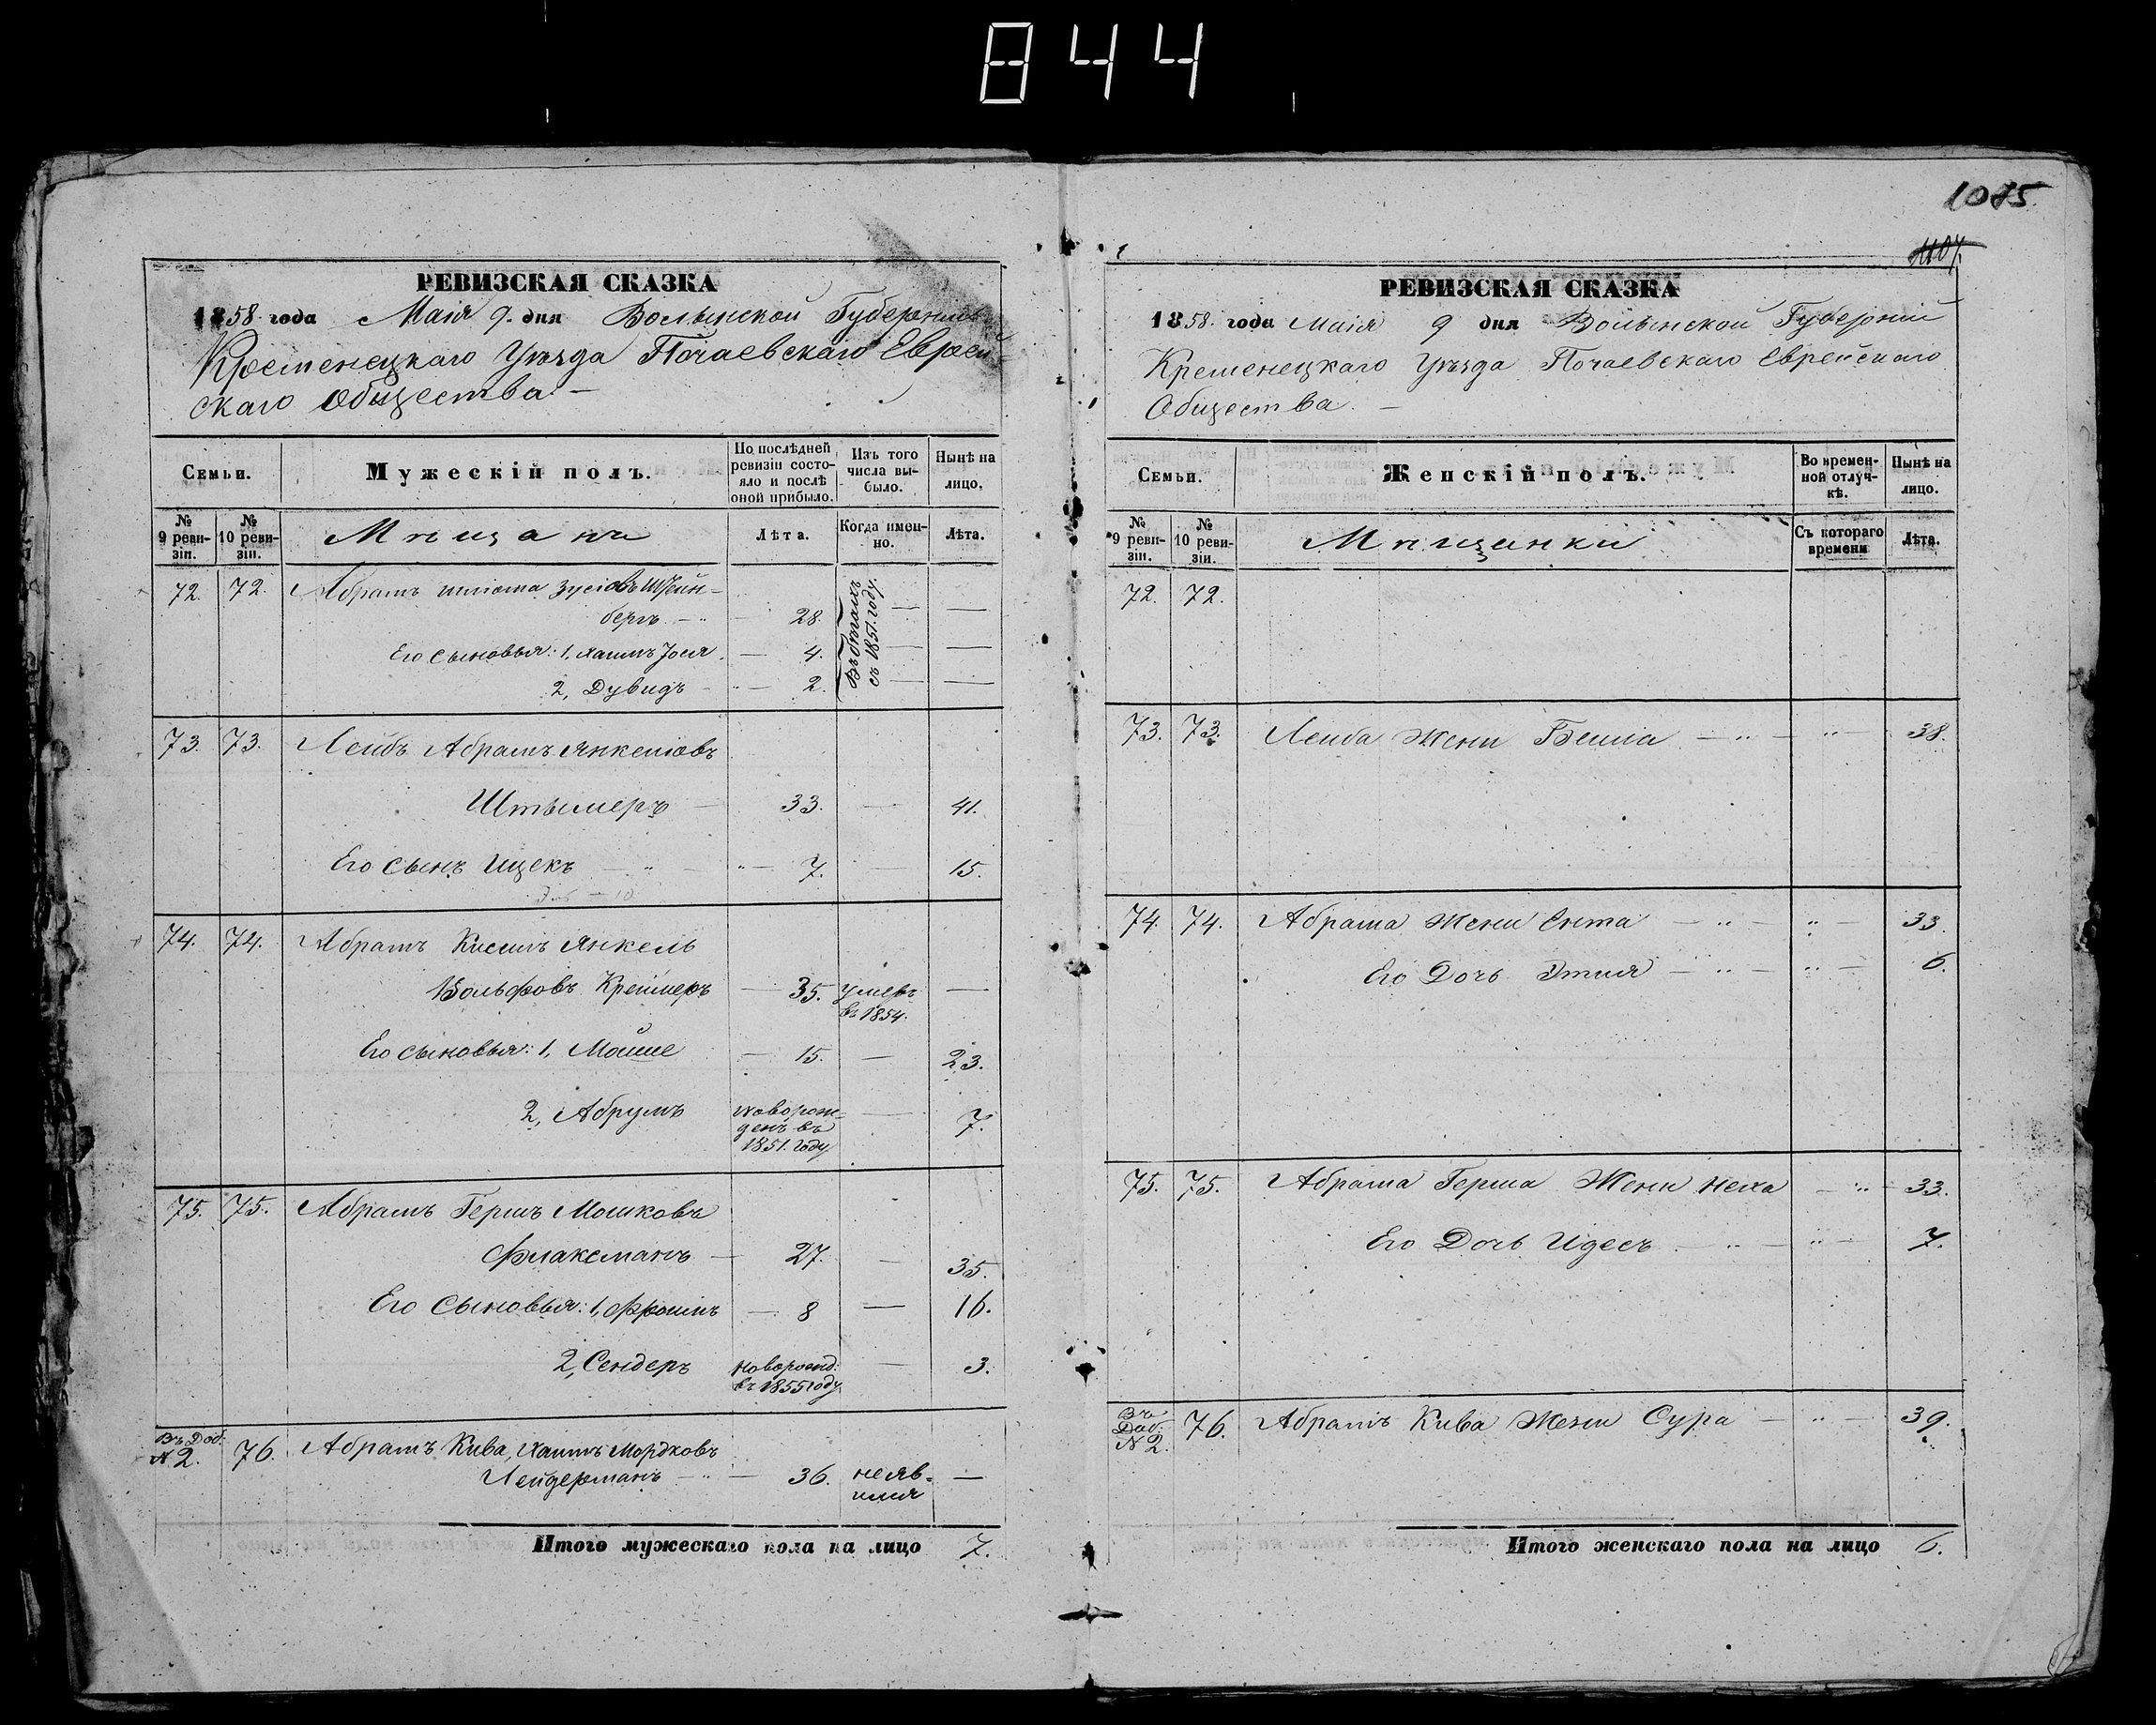 844
1075
1107.
РЕВИЗСКАЯ СКАЗКА
1858 года Маія 9. дня Волынской Губерніи
Кременецкаго Уѣзда Почаевскаго Еврей-
скаго Общества. –
Семьи.
Мужескій полъ.
По послѣдней ревизіи состо-
яло и послѣ
оной прибыло.
Изъ того
числа вы-
было.
Нынѣ на
лицо.
№ 9 реви-
зіи.
№ 10 реви-
зіи.
Мѣщанъ
Лѣта.
Когда имен-
но.
Лѣта.
72. 72. Абрамъ Шліома Зусіовъ Штейн-
бергъ – 28. — —
Его сыновья: 1, Хаимъ Іося — 4. — —
2, Дувидъ – 2. — —
Въ бѣгахъ
съ 1851. году.
73. 73. Лейбъ Абрамъ Янкеліовъ
Штымеръ — 33. — 41.
Его сынъ Ицекъ — 7. — 15.
74. 74. Абрамъ Кисиль Янкель
Вольфовъ Креймеръ — 35. умеръ —
въ 1854.
Его сыновья: 1, Мошше — 15. — 23.
2, Абрумъ новорож-
денъ въ
1851. году — 7.
75. 75. Абрамъ Гершъ Мошковъ
Флаксманъ — 27. — 35.
Его Сыновья: 1, Фроимъ — 8 — 16.
2, Сендеръ новорожд:
въ 1855 году — 3.
Въ Доб.
№ 2. 76. Абрамъ Кива, Хаимъ Мордковъ
Лейдерманъ — 36. неяв- —
Итого мужескаго пола на лицо 7.
РЕВИЗСКАЯ СКАЗКА
1858. года Маія 9 дня Волынской Губерніи
Кременецкаго Уѣзда Почаевскаго Еврейскаго
Общества. –
Семьи.
Женскій полъ.
Во времен-
ной отлуч-
кѣ.
Нынѣ на
лицо.
№ 9 реви-
зіи.
№ 10 реви-
зіи.
Мѣщанки
Съ котораго
времени
Лѣта.
72. 72.
73. 73. Лейба Жена Бейла — " — " — 38.
74. 74. Абрама Жена Ента — " — " — 33.
Его Дочь Этля — " — " — 6.
75. 75. Абрама Герша Жена Неха — " — 33.
Его Дочь Идесъ — " — " — 7.
Въ
Доб:
№ 2. 76. Абрамъ Кива Жена Сура — " — 39.
Итого женскаго пола на лицо 6.